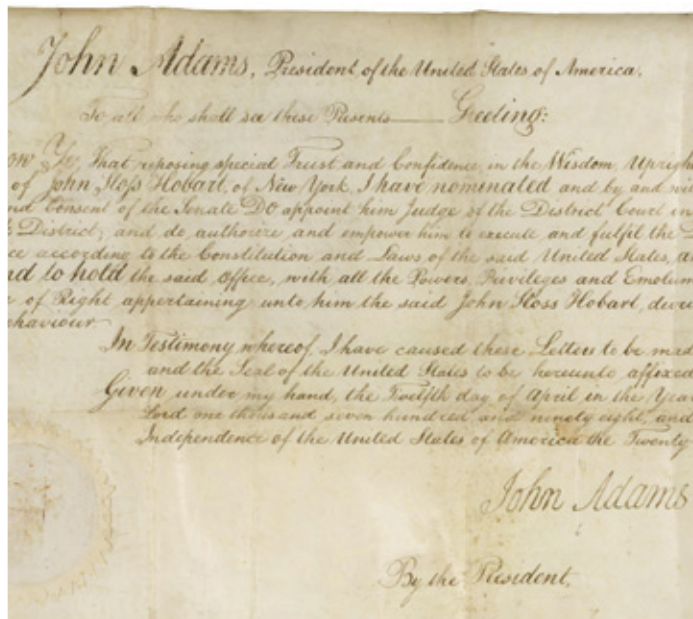 John Adams, President of the United States of America.
To all who shall see these Presents Greeting:
ow Ye, That reposing special Trust and Confidence in the Wisdom, Uprigh
of John Sloss Hobart, of New York, I have nominated and by and wi
nd Consent of the Senate Do appoint him Judge of the District Court in
District; and do authorize and empower him to execute and fulfil the
ce according to the Constitution and Laws of the said United States, a
nd to hold the said Office, with all the Powers, Privileges and Emolum
e of Right appertaining unto him the said John Sloss Hobart, du
ehaviour
In Testimony whereof, I have caused these Letters to be mad
and the Seal of the United States to be hereunto affixed
Given under my hand, the Twelfth day of April in the Year
Lord one thousand seven hundred and ninety eight, and
Independence of the United States of America the Twenty
John Adams
By the President,